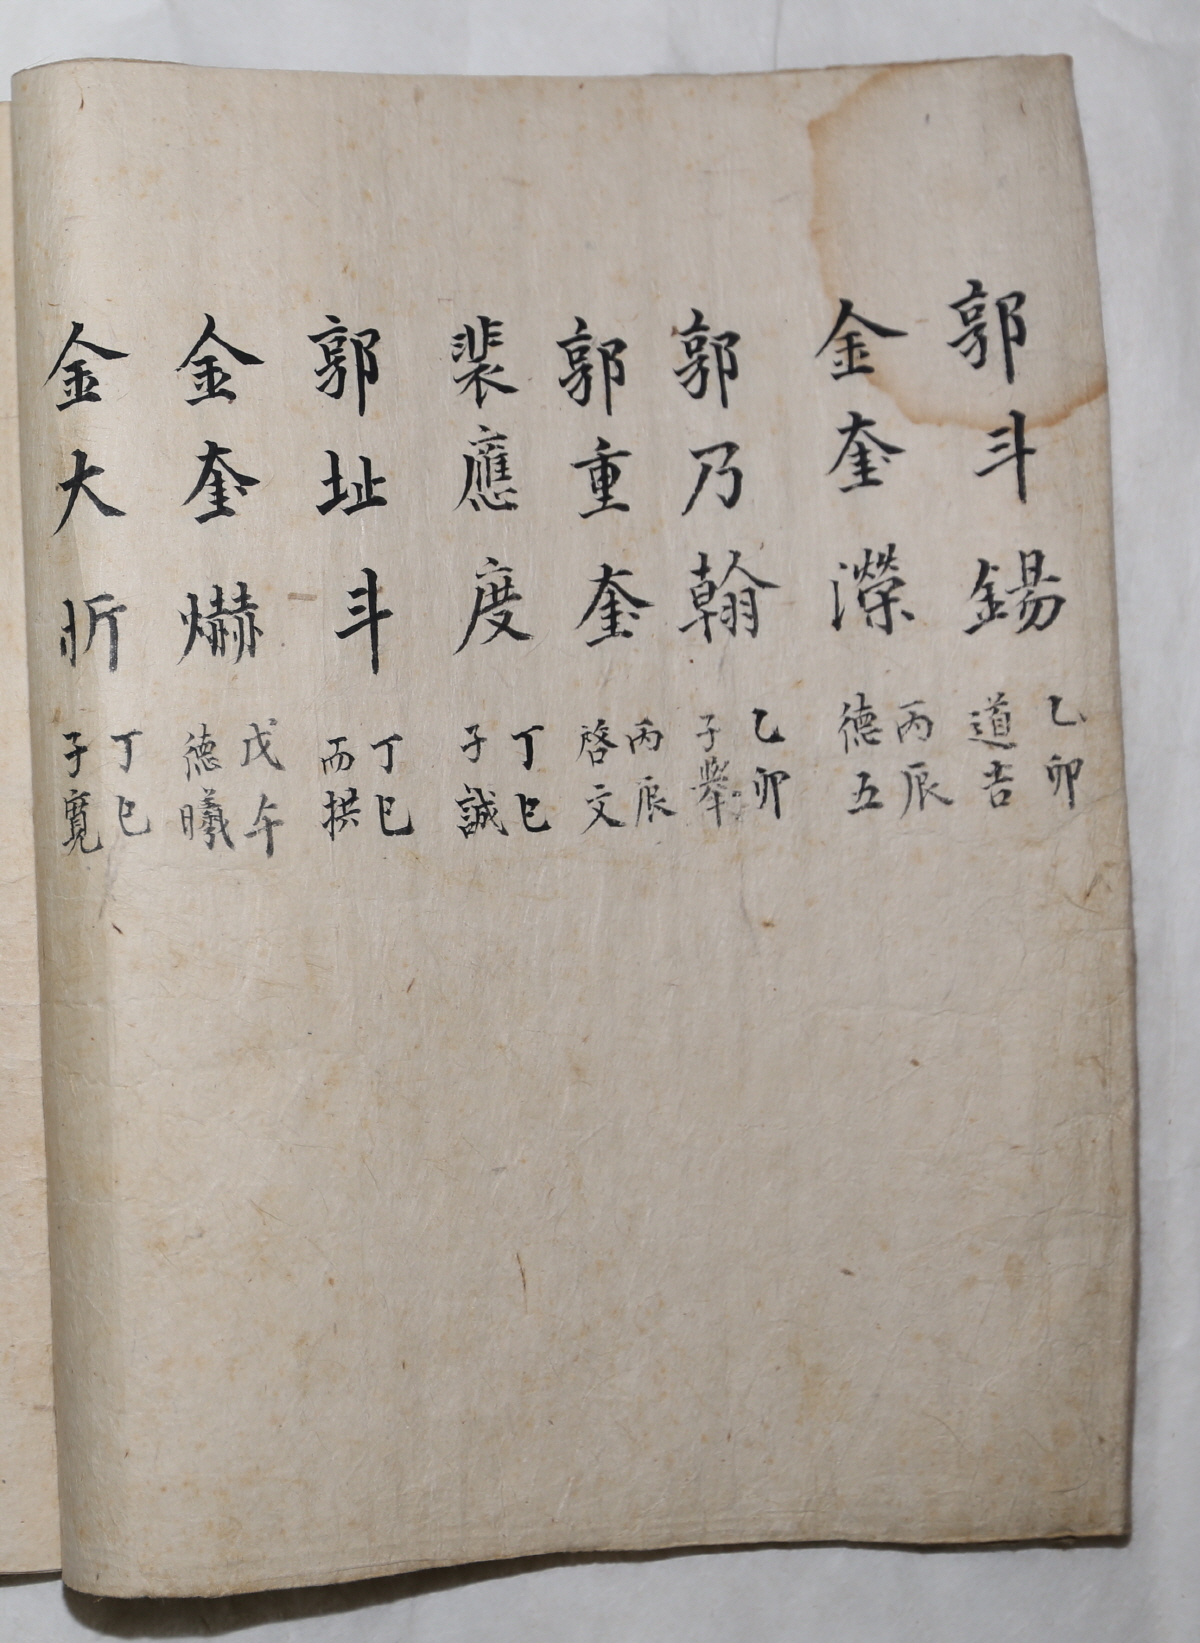 郭斗錫 乙卯 道吉
金奎濚 丙辰 德五
郭乃翰 乙卯 子擧
郭重奎 丙辰 啓文
裴應度 丁巳 子誠
郭址斗 丁巳 而拱
金奎爀 戊午 德曦
金大㫁 丁巳 子寬